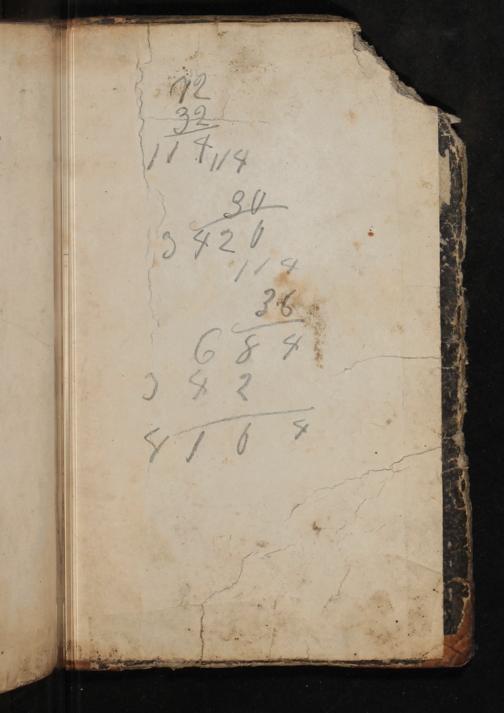 72
32
114 114
30
3420
114
36
684
342
4104